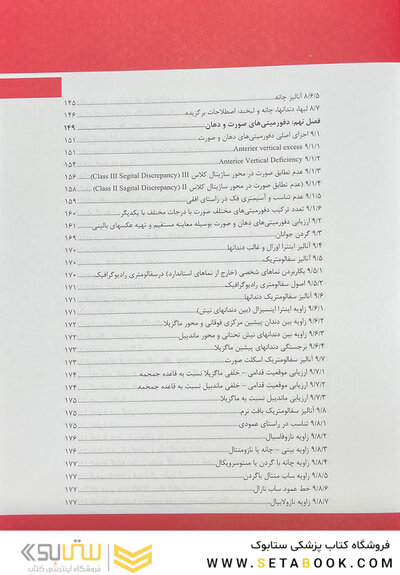 ۸/۶/۵ آنالیز چانه ۱۴۵
۸/۷ لبها، دندانها، چانه و لبخند: اصطلاحات برگزیده ۱۴۶
فصل نهم: دفورمیتی‌های صورت و دهان ۱۴۹
۹/۱ اجزای اصلی دفورمیتی‌های دهان و صورت ۱۵۱
۹/۱/۱ Anterier vertical excess ۱۵۱
۹/۱/۲ Anterior Vertical Deficiency ۱۵۴
۹/۱/۳ عدم تطابق صورت در محور ساژیتال کلاس III (Class III Segital Discrepancy) ۱۵۶
۹/۱/۴ (عدم تطابق صورت در محور ساژیتال کلاس II (Class II Sagital Discrepancy ۱۵۸
۹/۱/۵ عدم تناسب و آسیمتری فک در راستای افقی ۱۵۹
۹/۱/۶ تعدد ترکیب دفورمیتی‌های مختلف صورت با درجات مختلف با یکدیگر ۱۶۰
۹/۲ ارزیابی دفورمیتی‌های دهان و صورت بوسیله معاینه مستقیم و تهیه عکسهای بالینی ۱۶۱
۹/۳ گردن جوانان ۱۶۹
۹/۴ آنالیز اینترا اورال و قالب دندانها ۱۷۰
۹/۵ آنالیز سفالومتریک ۱۷۰
۹/۵/۱ بکاربردن نماهای شخصی (خارج از نماهای استاندارد) درسفالومتری رادیوگرافیک ۱۷۰
۹/۵/۲ اصول سفالومتری رادیوگرافیک ۱۷۱
۹/۶ آنالیز سفالومتریک دندانها ۱۷۱
۹/۶/۱ زاویه اینترا اینسیزال (بین دندانهای نیش) ۱۷۲
۹/۶/۲ زاویه بین دندان پیشین مرکزی فوقانی و محور ماگزیلا ۱۷۲
۹/۶/۳ زاویه بین دندانهای نیش تحتانی و محور ماندیبل ۱۷۲
۹/۶/۴ برجستگی دندانهای پیشین ماگزیلا ۱۷۳
۹/۷ آنالیز سفالومتریک اسکلت صورت ۱۷۳
۹/۷/۱ ارزیابی موقعیت قدامی – خلفی ماگزیلا نسبت به قاعده جمجمه ۱۷۴
۹/۷/۲ ارزیابی موقعیت قدامی – خلفی ماندیبل نسبت به قاعده جمجمه ۱۷۴
۹/۷/۳ ارزیابی ماندیبل نسبت به ماگزیلا ۱۷۵
۹/۸ آنالیز سفالومتریک بافت نرم ۱۷۵
۹/۸/۱ تناسب در راستای عمودی ۱۷۵
۹/۸/۲ زاویه نازوفاسیال ۱۷۶
۹/۸/۳ زاویه بینی – چانه یا نازومنتال ۱۷۶
۹/۸/۴ زاویه چانه با گردن یا منتوسرویکال ۱۷۷
۹/۸/۵ زاویه ساب منتال باگردن ۱۷۷
۹/۸/۶ خط عمود ساب نازال ۱۷۷
۹/۸/۷ زاویه نازولابیال ۱۷۷
فروشگاه کتاب پزشکی ستابوک
WWW.SETABOOK.COM
ستابوک
فروشگاه اینترنتی کتاب